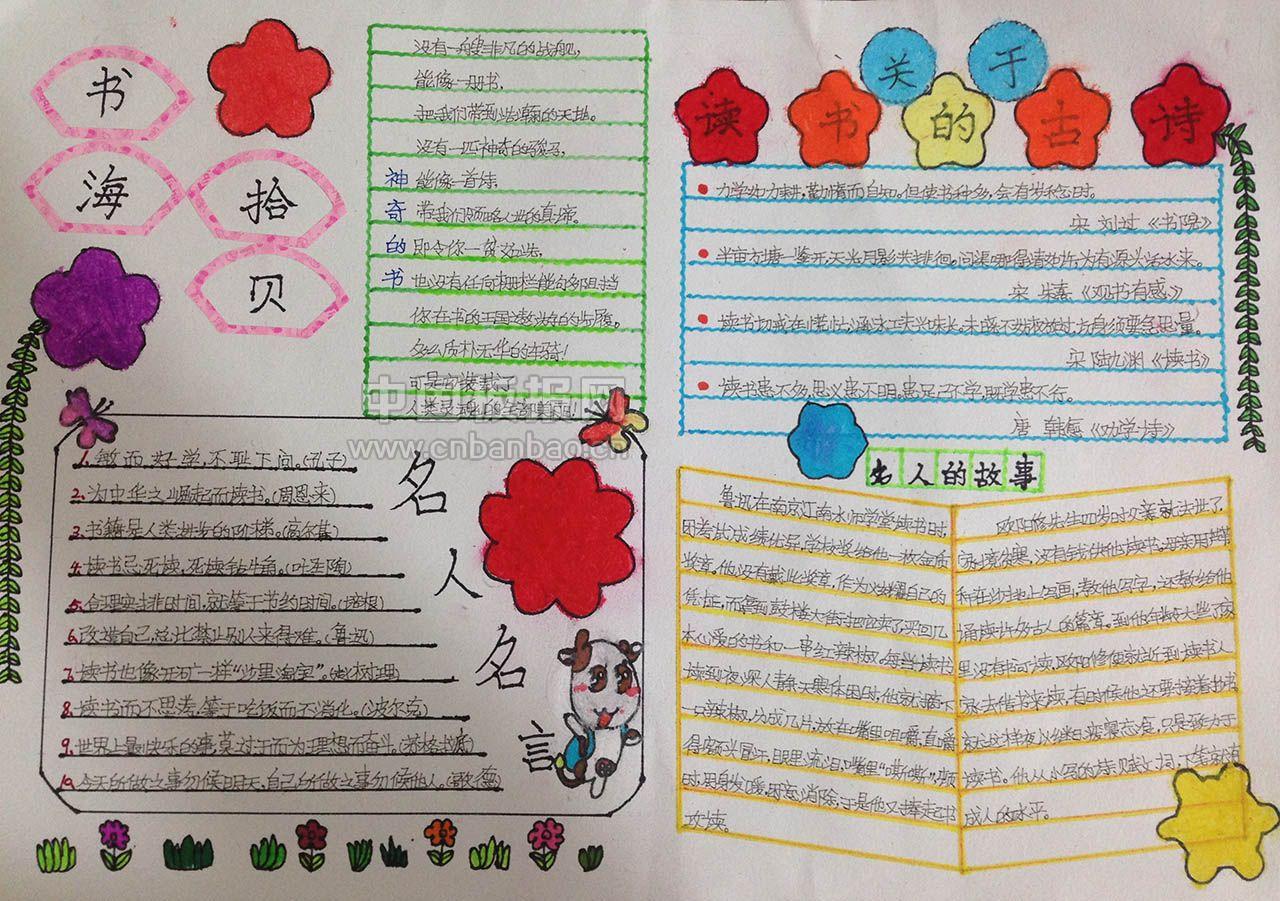 书
海
拾
贝
神奇的书
没有一艘非凡的战舰,
能像一册书,
把我们带到浩瀚的天地。
没有一匹神奇的骏马,
能像一首诗,
带我们领略人世的真谛。
即令你一贫如洗,
也没有任何栅栏能的阻挡
你在书的王国遨游的步履。
多么质朴无华的车骑!
可是它装载了
人类灵魂中的全部美丽!
名
人
名
言
1. 敏而好学,不耻下问。(孔子)
2. 为中华之崛起而读书。(周恩来)
3. 书籍是人类进步的阶梯。(高尔基)
4. 读书忌死读,死读钻牛角。(叶圣陶)
5. 合理安排时间,就等于节约时间。(培根)
6. 改造自己,总比禁止别人来得难。(鲁迅)
7. 读书也像开矿一样“沙里淘金”。(赵树理)
8. 读书而不思考,等于吃饭而不消化。(波尔克)
9. 世界上最快乐的事,莫过于而为理想而奋斗。(苏格拉底)
10. 今天所做之事勿候明天,自己所做之事勿候他人。(歌德)
关于
读书的古诗
力学如力耕,勤惰而自知。但使书种多,会有岁稔时。
宋 刘过《书院》
半亩方塘一鉴开,天光月影共徘徊,问渠哪得清如许,为有源头活水来。
宋 朱熹《观书有感》
读书切戒在慌忙,涵泳工夫兴味长。未晓不妨权放过,方身须要急思量。
宋 陆九渊《读书》
读书患不多,思义患不明,患足已不学,既学患不行。
唐 韩愈《劝学诗》
名人的故事
鲁迅在南京江南水师学堂读书时,
因考试成绩优异,学校奖给他一枚金质
奖章。他没有戴此奖章,作为炫耀自己的
凭证,而拿到鼓楼大街把它卖了买回几
本心爱的书和一串红辣椒。每当读书
读到夜深人静天寒体困时,他就摘下
一只辣椒,分成几片,放在嘴里咀嚼,直嚼
得额头冒汗,眼里流泪,嘴里“嘶嘶”,顿
时,周身发暖,困意消除,于是他又捧起书
攻读。
欧阳修先生四岁时父亲就去世了,
家境贫寒,没有钱供他读书。母亲用芦苇
秆在沙地上写画,教他写字,还教给他
诵读许多古人的篇章。到他年龄大些了,家
里没有书可读,欧阳修便就近到读书人
家去借书来读,有时候他还要接着抄书
就这样夜以继日,废寝忘食,只是致力于
读书。他从小写的诗、赋文词,下笔就有
成人的水平。
中国板报网
www.cnbanbao.cn